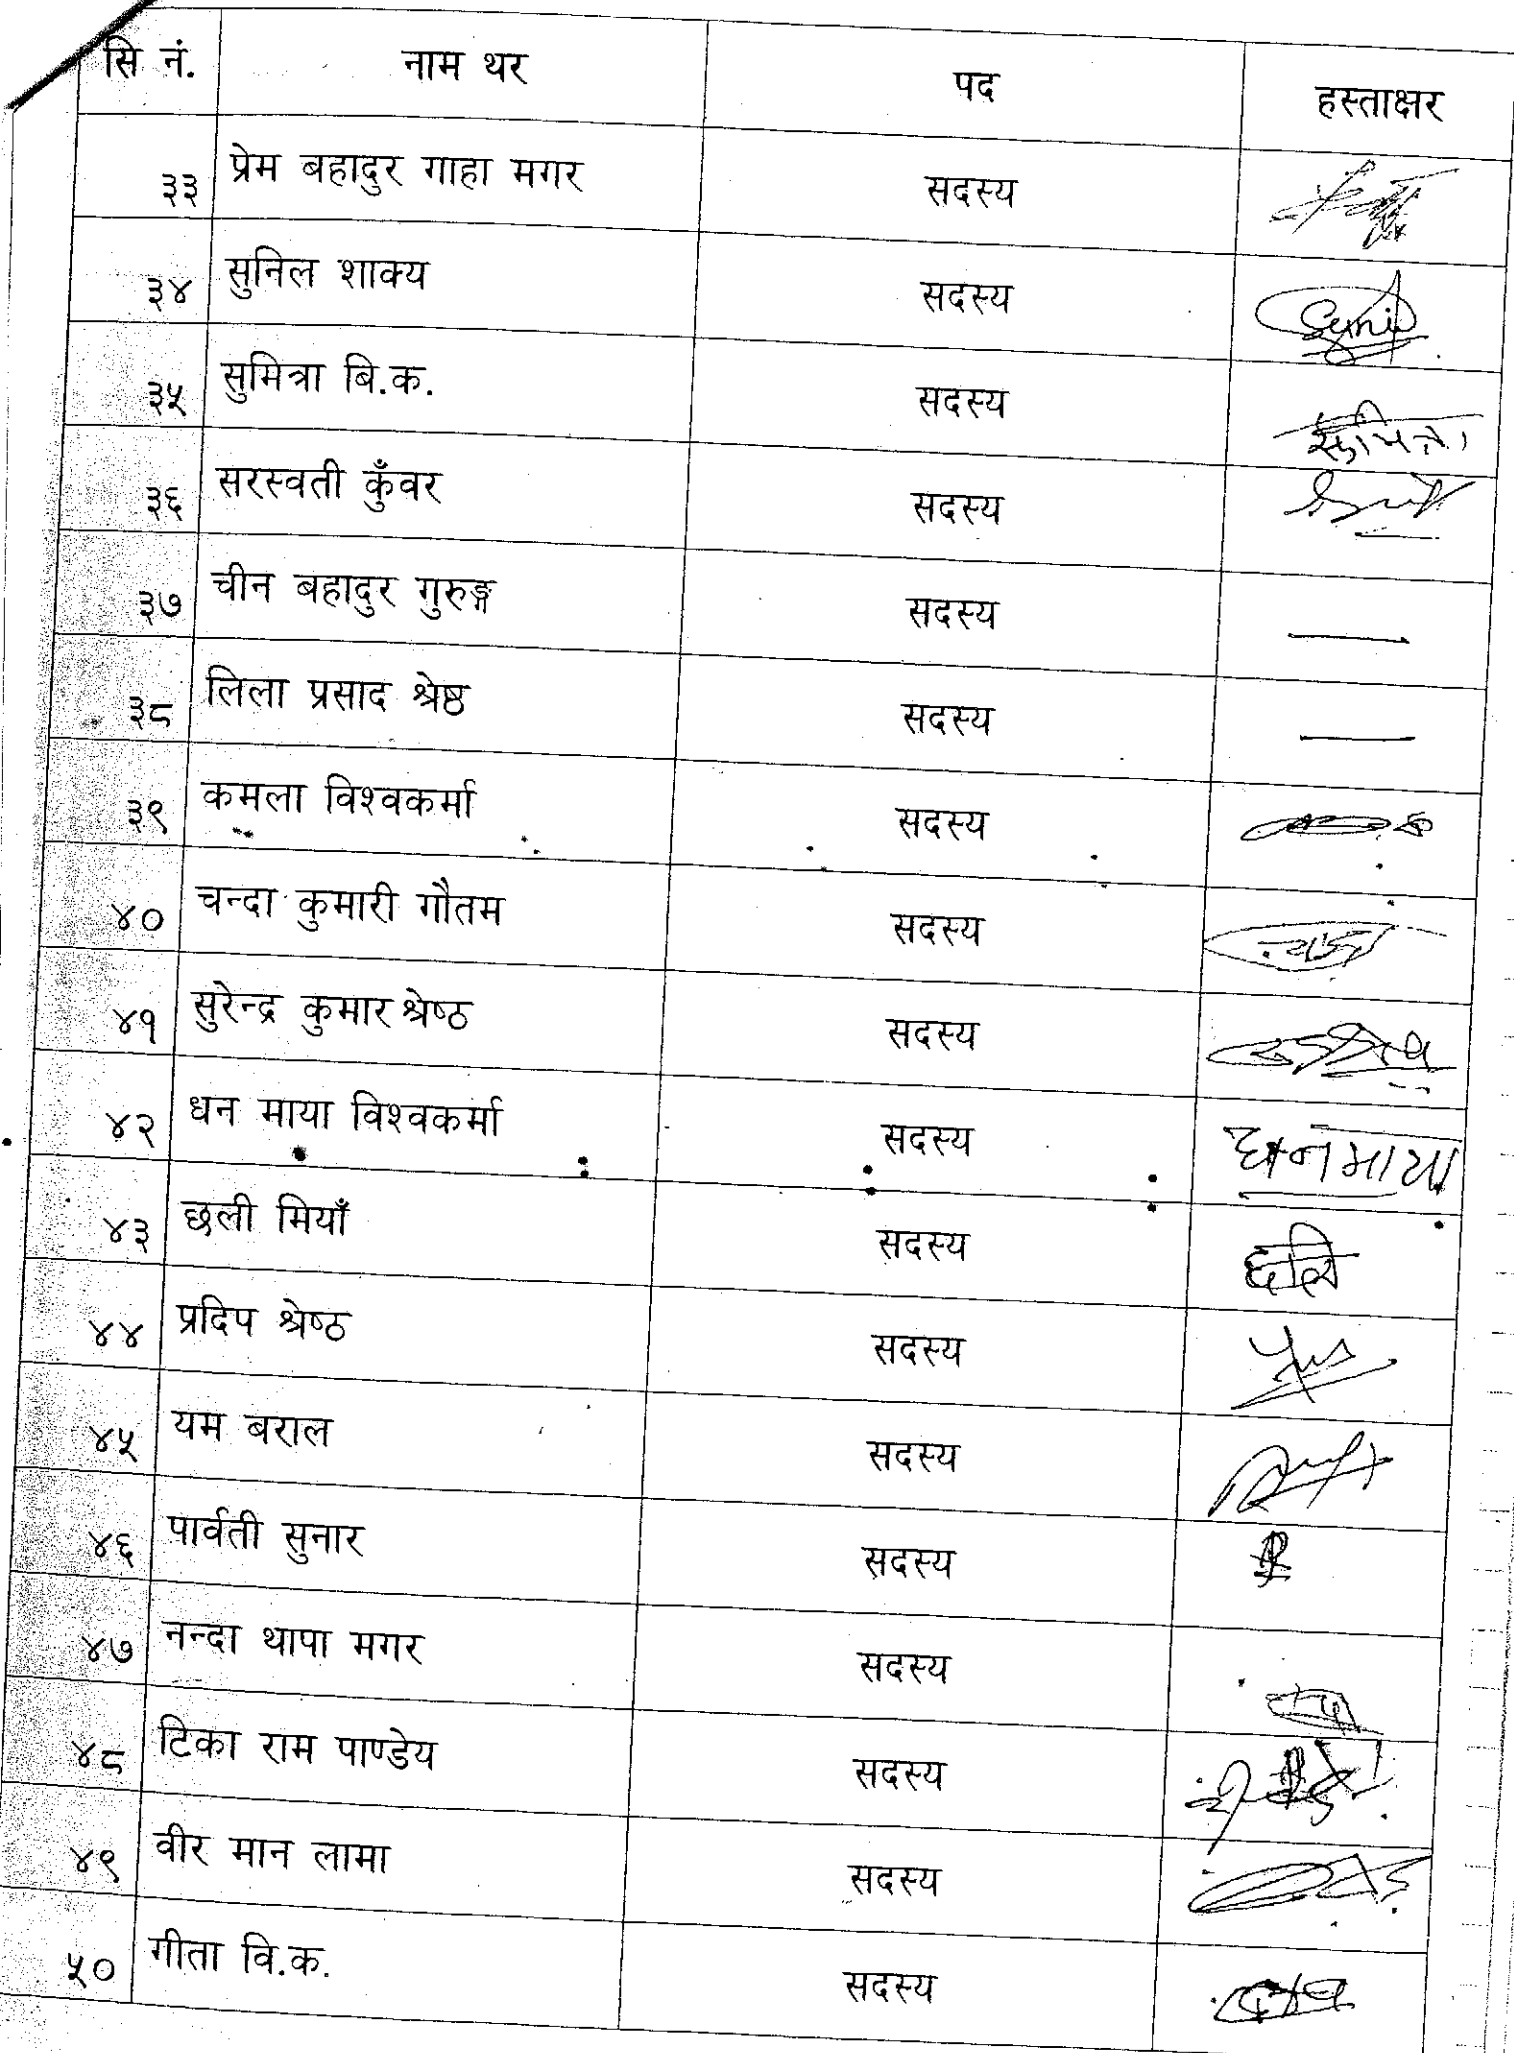 सि नं. नाम थर पद हस्ताक्षर
३३ प्रेम बहादुर गाहा मगर सदस्य
३४ सुनिल शाक्य सदस्य Sunil
३५ सुमित्रा बि.क. सदस्य
३६ सरस्वती कुँवर सदस्य
३७ चीन बहादुर गुरुङ्ग सदस्य —
३८ लिला प्रसाद श्रेष्ठ सदस्य —
३९ कमला विश्वकर्मा सदस्य
४० चन्दा कुमारी गौतम सदस्य
४१ सुरेन्द्र कुमार श्रेष्ठ सदस्य
४२ धन माया विश्वकर्मा सदस्य धनमाया
४३ छली मियाँ सदस्य छलि
४४ प्रदिप श्रेष्ठ सदस्य
४५ यम बराल सदस्य
४६ पार्वती सुनार सदस्य
४७ नन्दा थापा मगर सदस्य
४८ टिका राम पाण्डेय सदस्य
४९ वीर मान लामा सदस्य
५० गीता वि.क. सदस्य